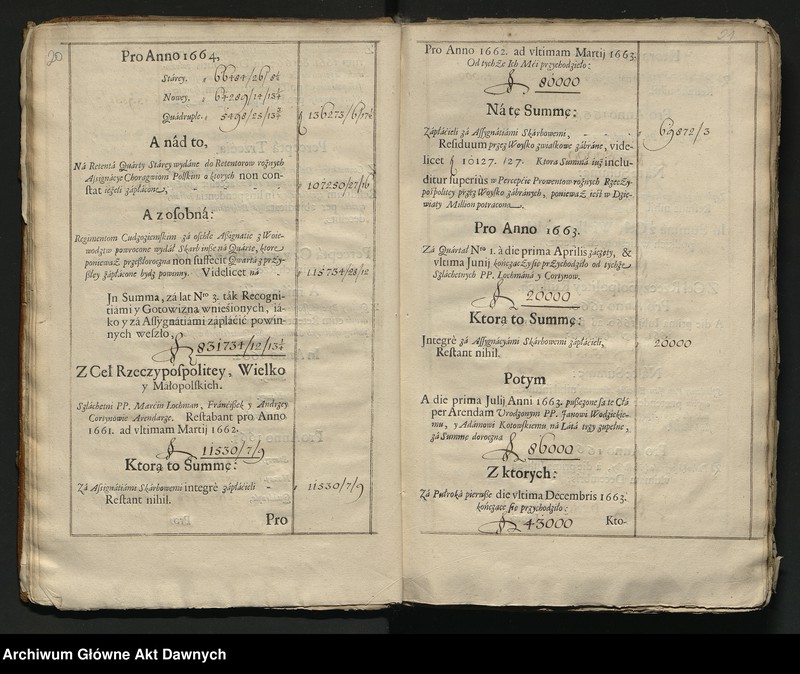 20
Pro Anno 1664,
Stárey. 66484/26/8½
Nowey. 64289/14/13½
Quadruple. 5498/25/13½
136273/6/17½
A nád to,
Ná Retentá Quárty Stárey wydáne do Retentorow rożnych
Assignácye Chorągwiom Polskim o ktorych non con-
stat ieżeli zápłácone, - - - 107250/27/16
A z osobná:
Regimentom Cudzoziemskim zá osobne Assignatie z Woie-
wodztw powrocone wydał Skarb inße ná Quárte, ktore
ponieważ przeßłoroczna non suffecit Qwartá z przy-
ßłey zápłácone bydź powinny. Videlicet ná - 115734/28/12
Jn Summa, zá lat Nro 3. ták Recogni-
tiami y Gotowizną wnieśionych, iá-
ko y zá Assygnátiami zapłácić powin-
nych weszło,
831734/12/13½
Z Ceł Rzeczypospolitey, Wielko
y Małopolskich.
Szláchetni PP. Marcin Lochman, Fránćißek y Andrzey
Cortynowie Arendarze. Restabant pro Anno
1661. ad vltimam Martij 1662.
11530/7/9
Ktora to Summę:
Zá Assignátiámi Skárbowemi integrè zápłáćieli - 11530/7/9
Restant nihil.
Pro
21
Pro Anno 1662. ad vltimam Martij 1663.
Od tychże Ich Mći przychodźiéło:
80000
Ná tę Summę:
Zápłáćieli zá Assignátiámi Skárbowemi, - - - 69872/3
Residuum przez Woysko zwiaskowe zábráne, vide-
licet 10127. /27. Ktora Summá iuż inclu-
ditur superiùs w Percepćie Prowentow rożnych Rzeczy-
pospolitey przez Woysko zábránych, ponieważ iest w Dźie-
wiąty Million potrącona.
Pro Anno 1663.
Zá Quártał Nro 1. à die prima Aprilis záczęty, &
vltima Junij kończączy się przychodźiło od tychże
Szláchetnych PP. Lochmáná y Cortynow.
20000
Ktorą to Summę:
Jntegrè zá Assygnácyámi Skárbowemi zápłáćieli, 20000
Restant nihil.
Potym
A die prima Julij Anni 1663. pußczone są te Cłá
per Arendam Vrodzonym PP. Janowi Wodzickie-
mu, y Adámowi Kotowskiemu ná Látá trzy zupełne,
zá Summę doroczną
86000
Z ktorych:
Zá Pułroká pierwße die vltima Decembris 1663.
kończące się przychodźiło:
43000
Kto-
Archiwum Główne Akt Dawnych